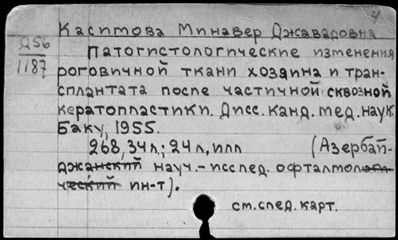 4
Касимова Минавер Джаваровна
Д56
1187
Патогистологические изменения
роговичной ткани хозяина и тран-
сплантата после частичной сквозной
кератопластики. Дисс. канд. мед. наук
Баку, 1955.
268, 34 л.; 24 л, илл (Азербай-
джанский науч.-исслед. офталмологи-
ческий ин-т).
см. след. карт.